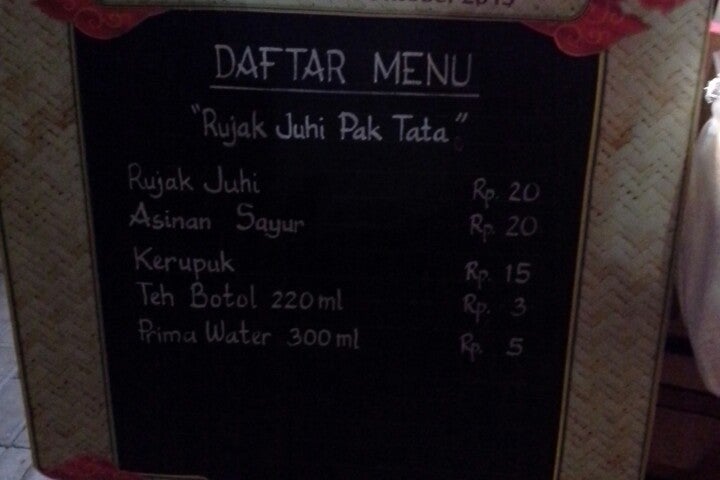 DAFTAR MENU
"Rujak Juhi Pak Tata"
Rujak Juhi Rp. 20
Asinan Sayur Rp. 20
Kerupuk Rp. 15
Teh Botol 220 ml Rp. 3
Prima Water 300 ml Rp. 5